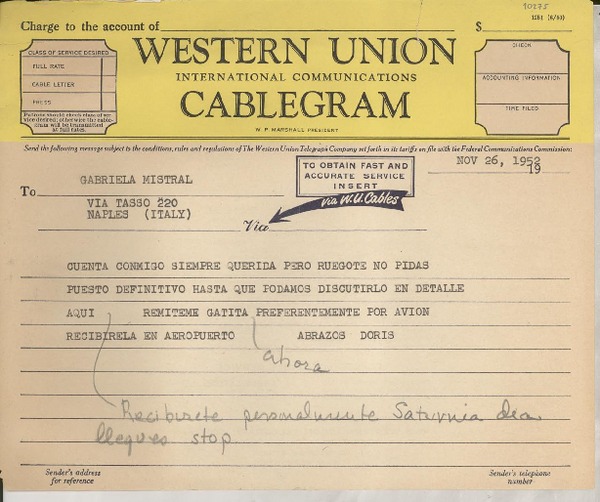 10275
Charge to the account of $
1281 (6/50)
CLASS OF SERVICE DESIRED
FULL RATE
CABLE LETTER
PRESS
Patrons should check class of service desired; otherwise the cablegram will be transmitted at full rates.
WESTERN UNION
INTERNATIONAL COMMUNICATIONS
CABLEGRAM
W. P. MARSHALL PRESIDENT
CHECK
ACCOUNTING INFORMATION
TIME FILED
Send the following message subject to the conditions, rules and regulations of The Western Union Telegraph Company set forth in its tariffs on file with the Federal Communications Commission:
NOV 26, 1952
19
TO OBTAIN FAST AND
ACCURATE SERVICE
INSERT
via W.U. Cables
To GABRIELA MISTRAL
VIA TASSO 220
NAPLES (ITALY)
Via
CUENTA CONMIGO SIEMPRE QUERIDA PERO RUEGOTE NO PIDAS
PUESTO DEFINITIVO HASTA QUE PODAMOS DISCUTIRLO EN DETALLE
AQUI REMITEME GATITA PREFERENTEMENTE POR AVION
RECIBIRELA EN AEROPUERTO ABRAZOS DORIS
ahora
Recibirete personalmente Saturnia dia
llegues stop
Sender's address
for reference
Sender's telephone
number